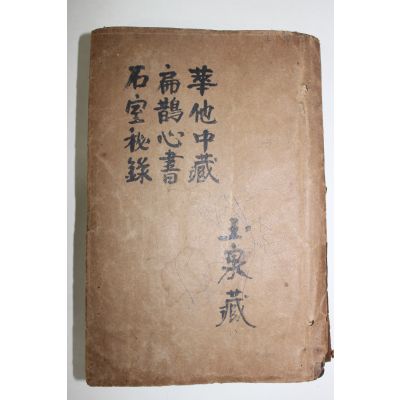 華佗中藏
扁鵲心書
石室秘錄
玉泉藏